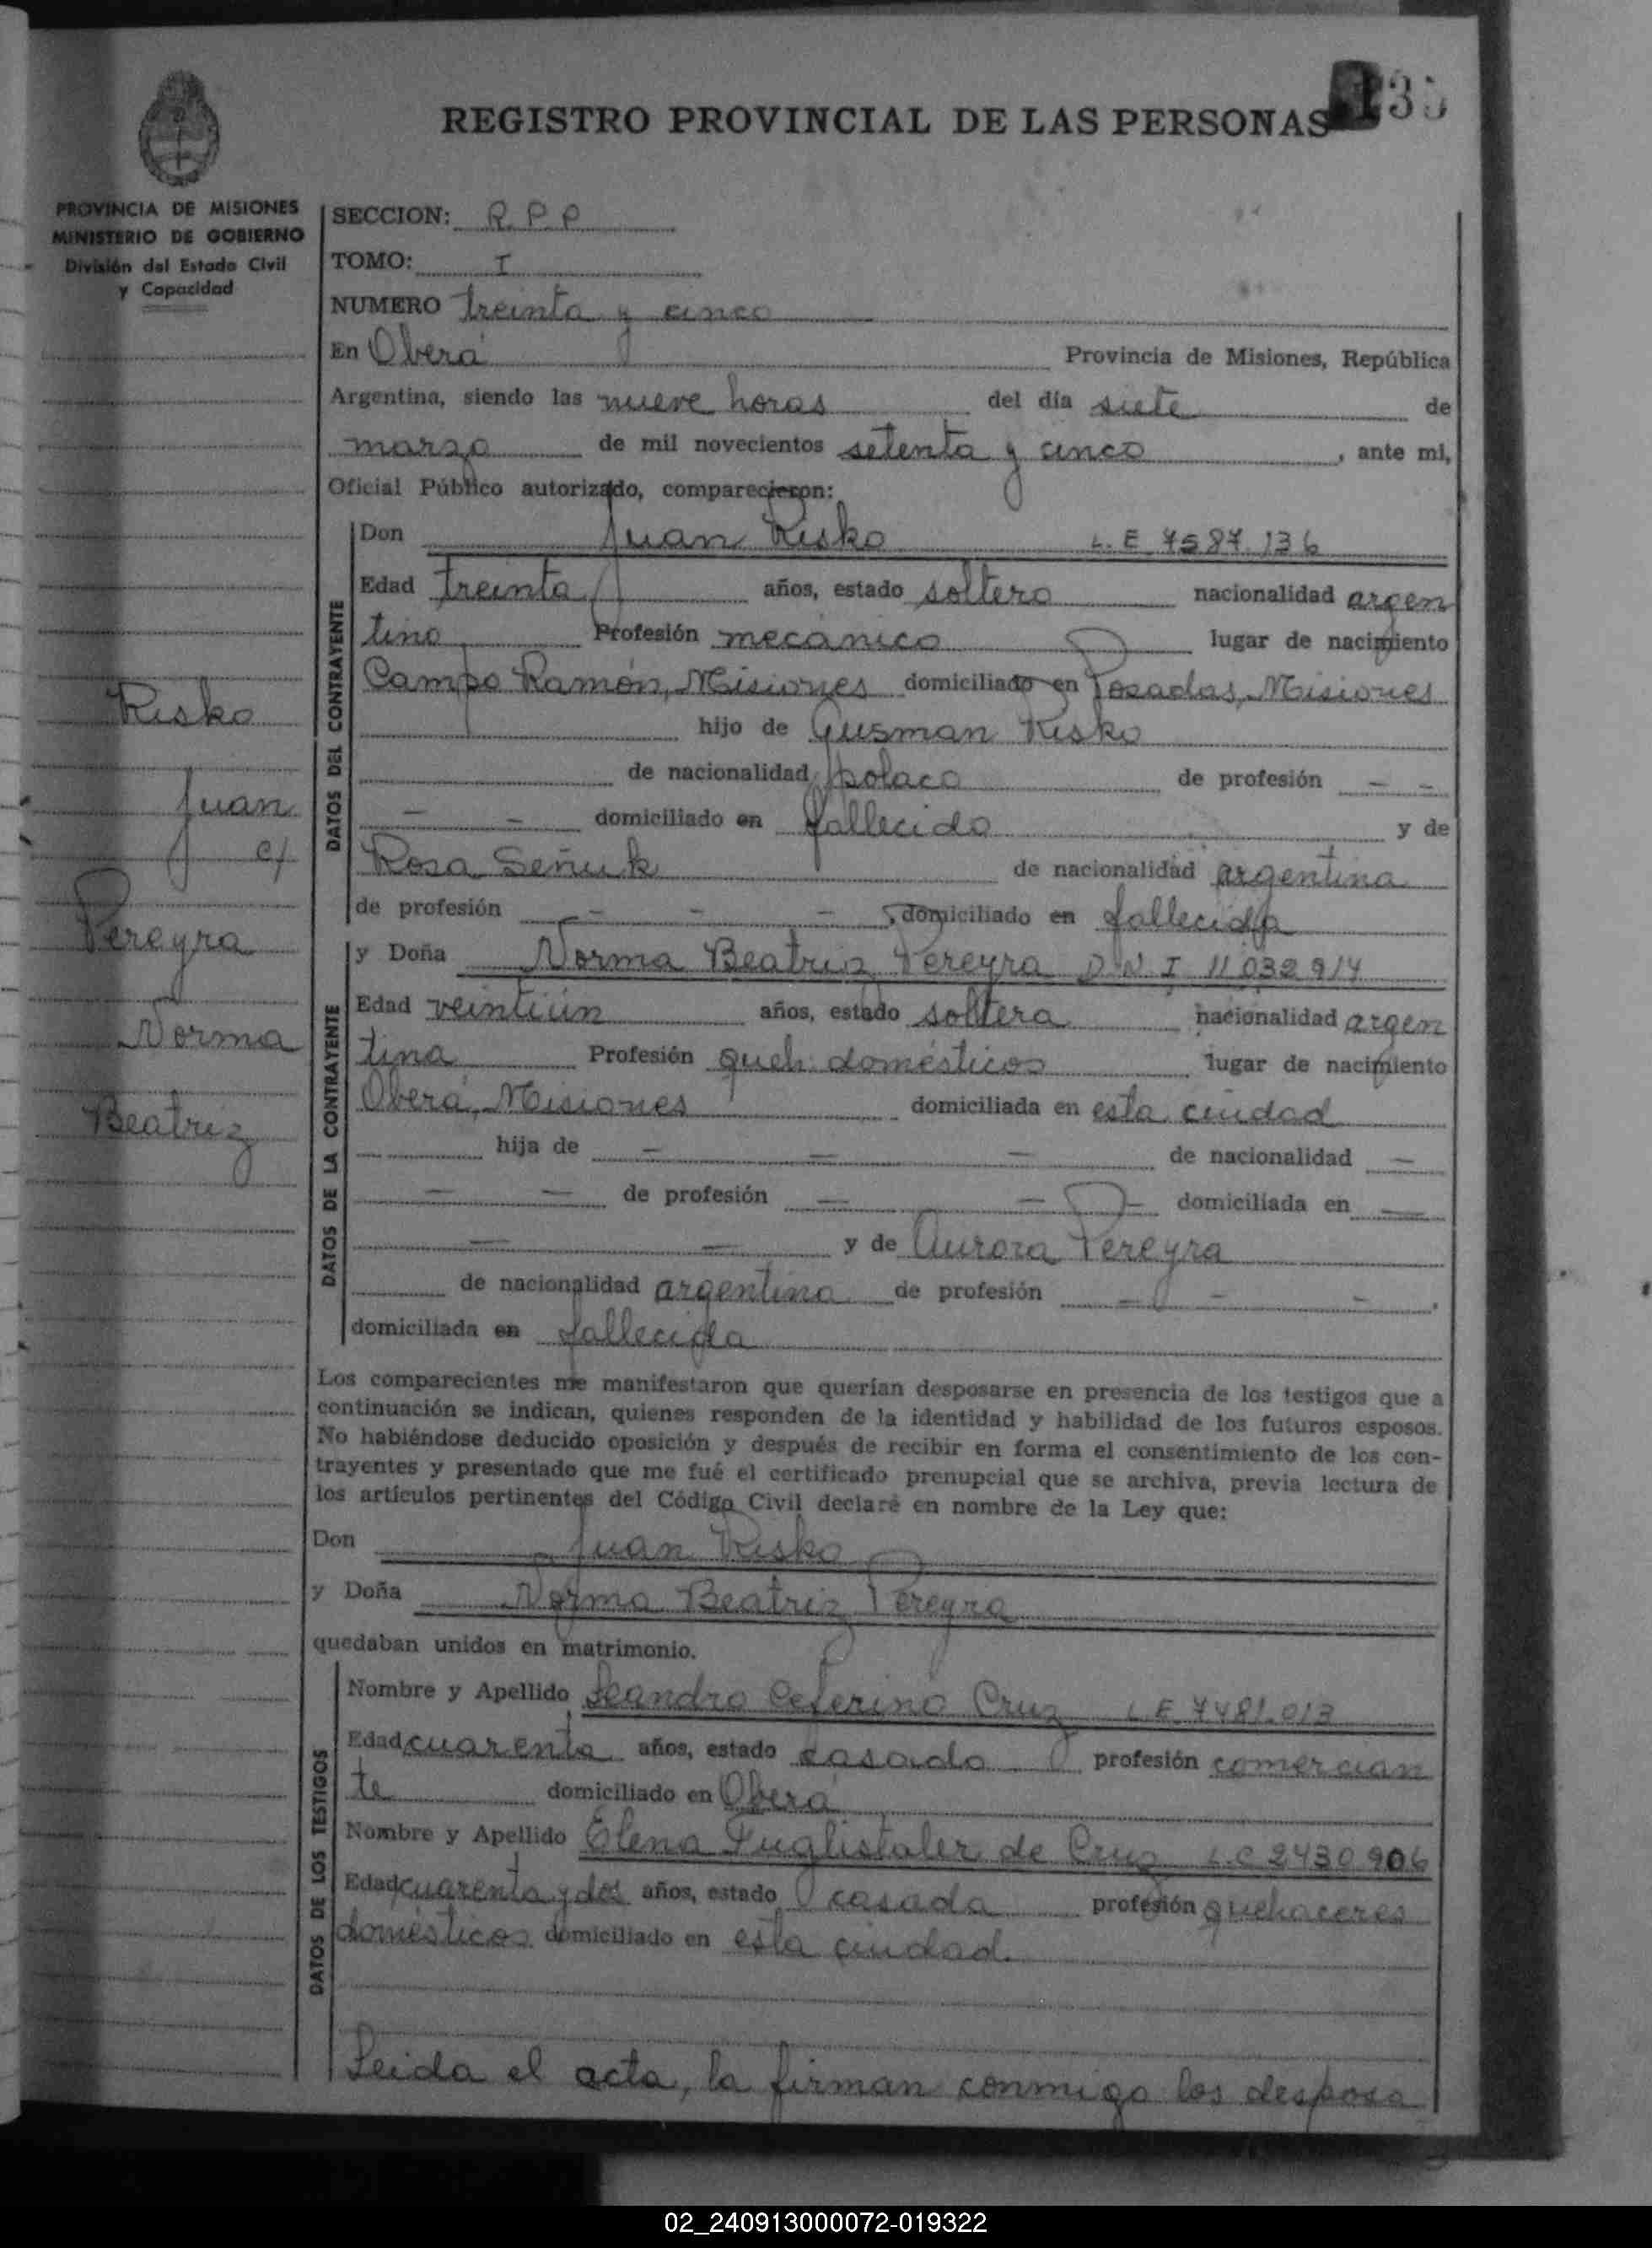 REGISTRO PROVINCIAL DE LAS PERSONAS
35
PROVINCIA DE MISIONES
MINISTERIO DE GOBIERNO
División del Estado Civil
y Capacidad
SECCION: R.P.P
TOMO: I
NUMERO treinta y cinco
En Oberá Provincia de Misiones, República
Argentina, siendo las nueve horas del día siete de
marzo de mil novecientos setenta y cinco, ante mi,
Oficial Público autorizado, comparecieron:
DATOS DEL CONTRAYENTE
Don Juan Risko L.E 7587.136
Edad treinta años, estado soltero nacionalidad argen
tino Profesión mecánico lugar de nacimiento
Campo Ramón, Misiones domiciliado en Posadas, Misiones
hijo de Gusman Risko
de nacionalidad polaco de profesión - -
- - domiciliado en fallecido y de
Rosa Señuk de nacionalidad argentina
de profesión - - - domiciliado en fallecida
Risko
Juan
c/
Pereyra
Norma
Beatriz
DATOS DE LA CONTRAYENTE
y Doña Norma Beatriz Pereyra D.N.I 11.032.914
Edad veintiún años, estado soltera nacionalidad argen
tina Profesión queh. domésticos lugar de nacimiento
Oberá, Misiones domiciliada en esta ciudad
hija de - - - de nacionalidad -
- - de profesión - - - domiciliada en -
- - y de Aurora Pereyra
de nacionalidad argentina de profesión - - -,
domiciliada en fallecida
Los comparecientes me manifestaron que querían desposarse en presencia de los testigos que a
continuación se indican, quienes responden de la identidad y habilidad de los futuros esposos.
No habiéndose deducido oposición y después de recibir en forma el consentimiento de los con-
trayentes y presentado que me fué el certificado prenupcial que se archiva, previa lectura de
los artículos pertinentes del Código Civil declaré en nombre de la Ley que:
Don Juan Risko
y Doña Norma Beatriz Pereyra
quedaban unidos en matrimonio.
DATOS DE LOS TESTIGOS
Nombre y Apellido Leandro Ceferino Cruz L.E 7481.013
Edad cuarenta años, estado casado profesión comercian
te domiciliado en Oberá
Nombre y Apellido Elena Fuglistaler de Cruz L.C 2430906
Edad cuarenta y dos años, estado casada profesión quehaceres
domésticos domiciliado en esta ciudad.
Leida el acta, la firman conmigo los desposa
02_240913000072-019322